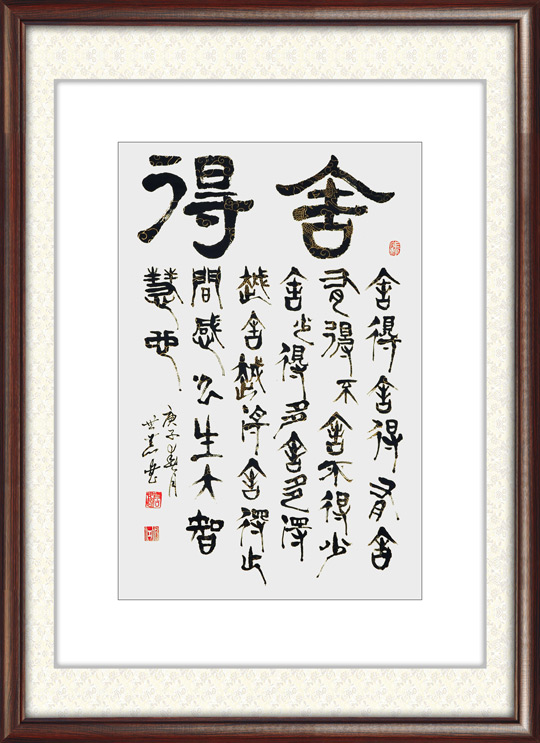 舍得
舍得舍得有舍
有得不舍不得少
舍少得多舍多得
越舍越得舍得之
間感人生大智
慧也
庚子春月
世